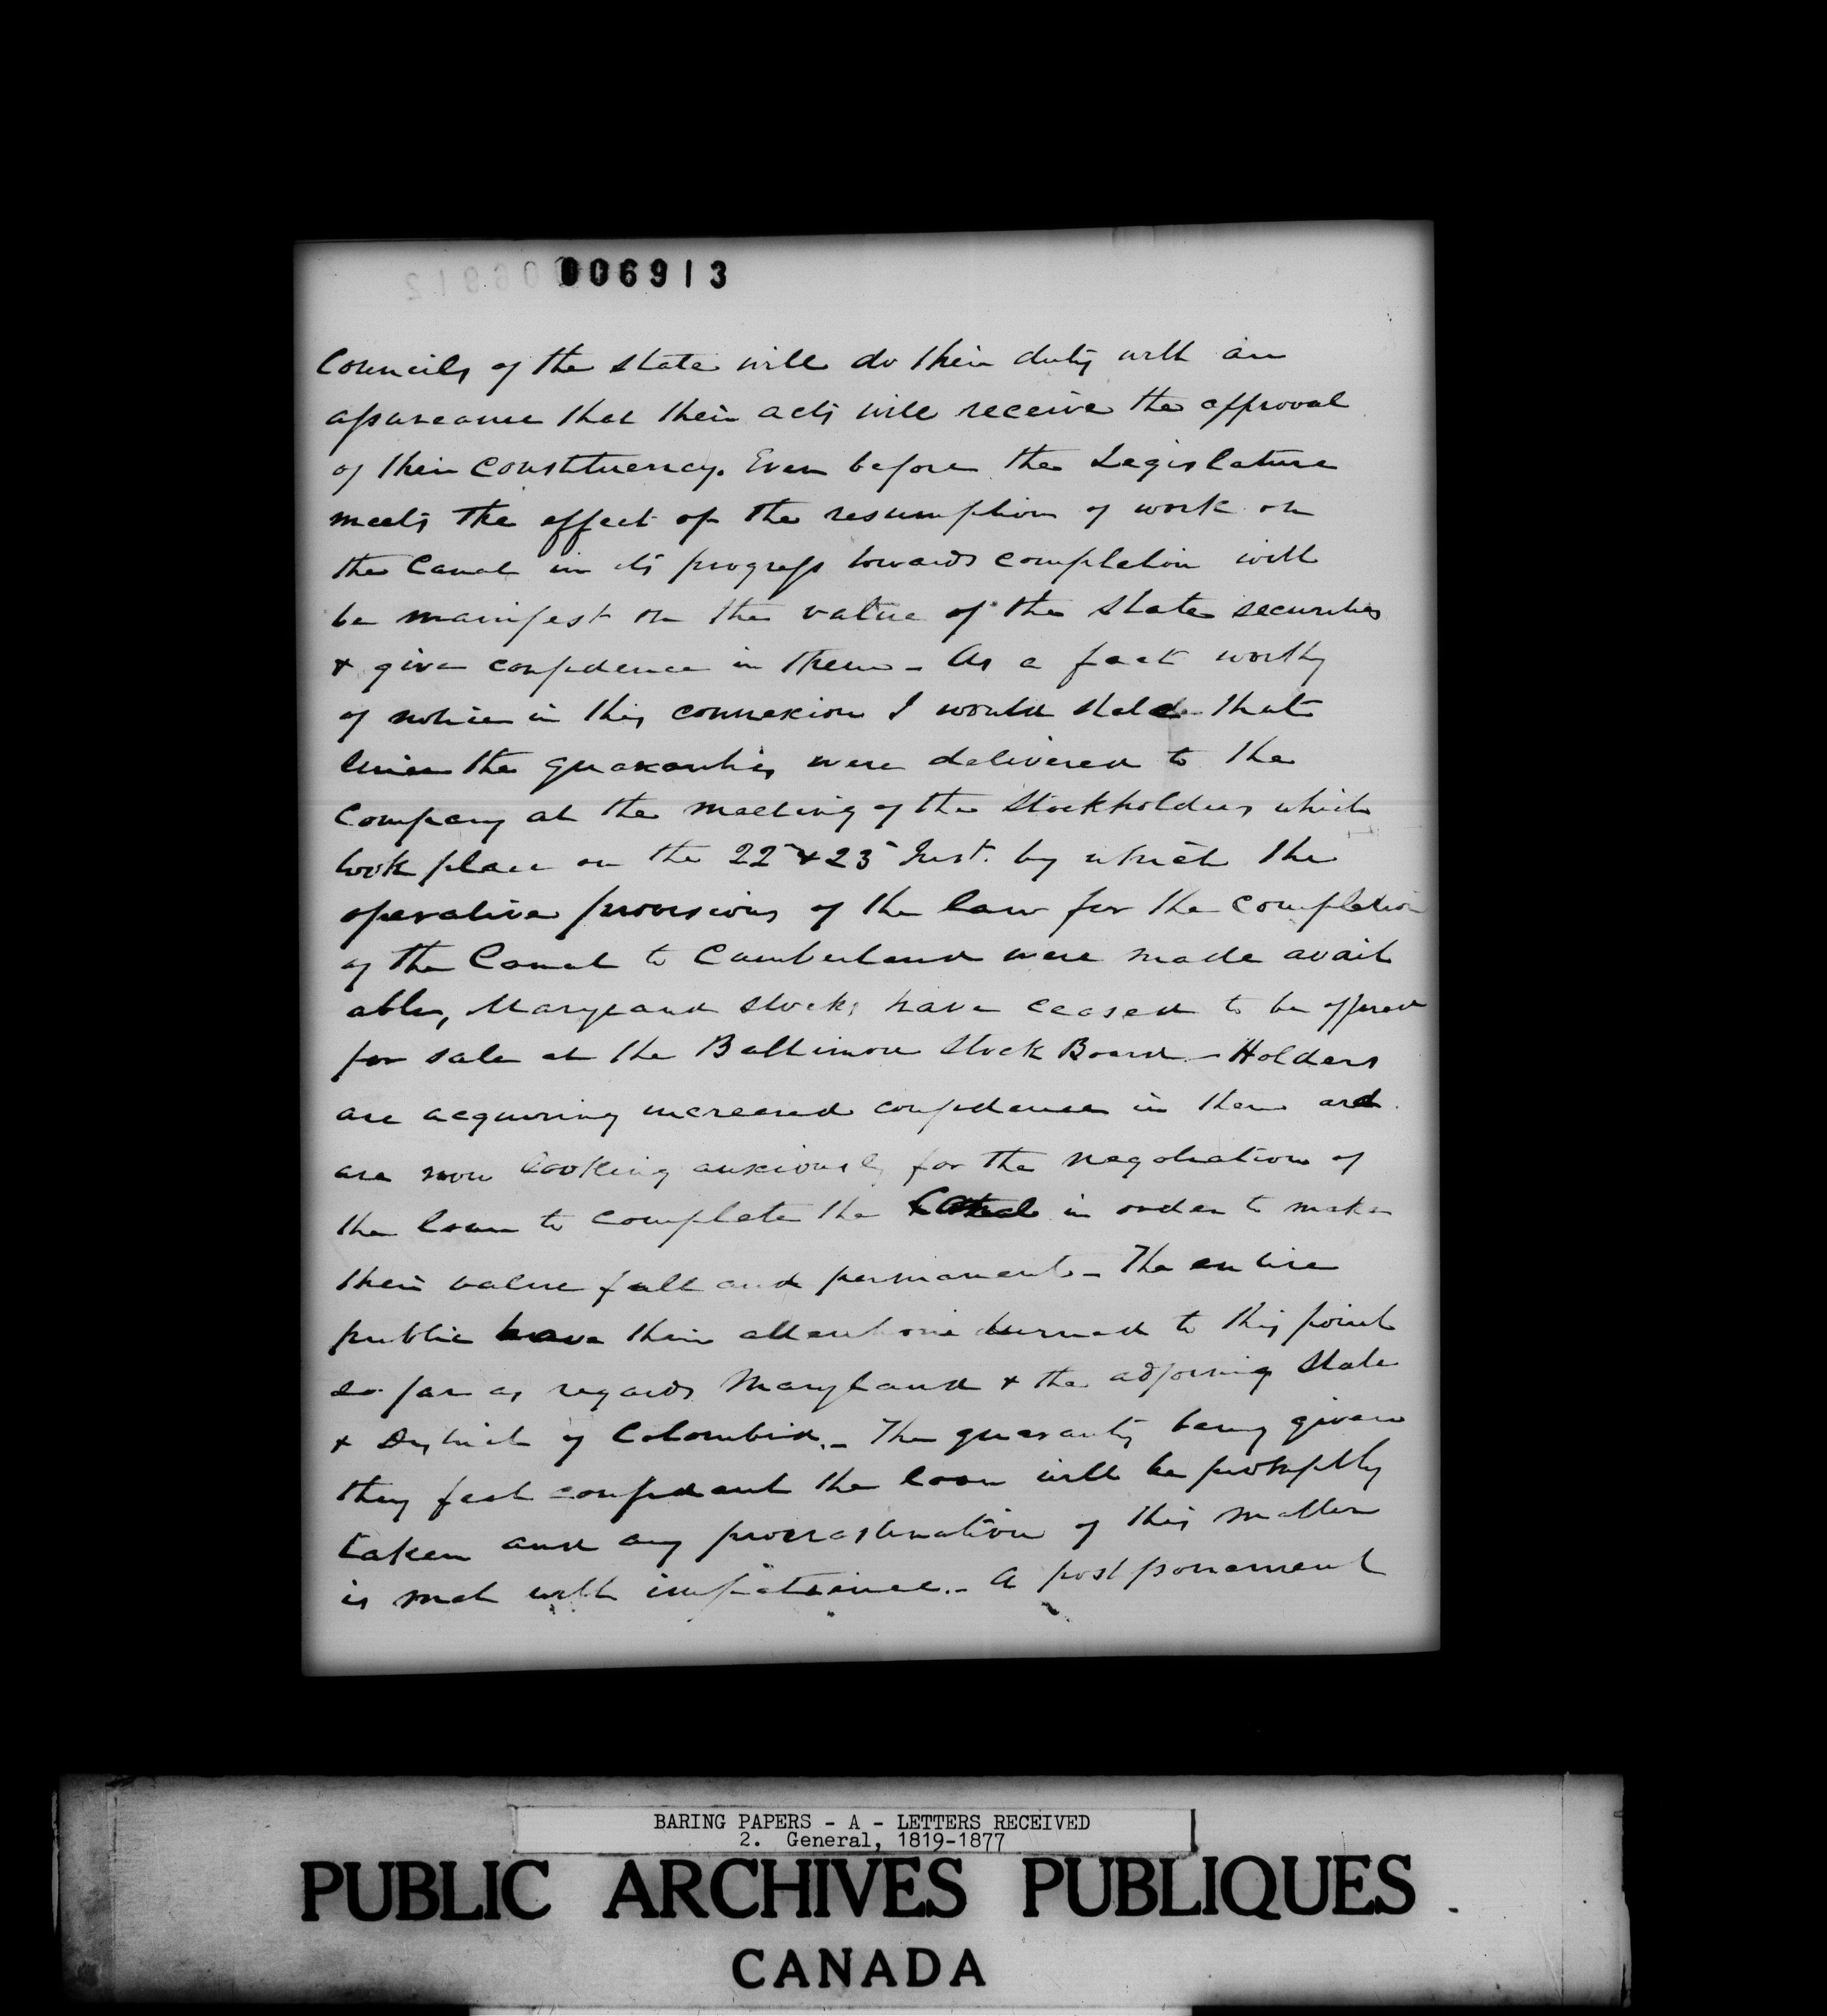 006913
Councils of the State will do their duty with an
assurance that their acts will receive the approval
of their constituency. Even before the Legislature
meets the effect of the resumption of work on
the Canal in its progress towards completion will
be manifest on the value of the State securities
& give confidence in them – As a fact worthy
of notice in this connexion I would state that
since the guaranties were delivered to the
Company at the meeting of the Stockholders which
took place on the 22 & 23 Inst. by which the
operative provisions of the law for the completion
of the Canal to Cumberland were made avail
able, Maryland stocks have ceased to be offered
for sale at the Baltimore Stock Board – Holders
are acquiring increased confidence in them and
are now looking anxiously for the negotiation of
the loan to complete the Canal in order to make
their value full and permanent – The entire
public have their attention turned to this point
so far as regards Maryland & the adjoining State
& District of Columbia. – The guaranty being given
they feel confidant the loan will be promptly
taken and any procrastination of this matter
is met with impatience. – A postponement
BARING PAPERS - A - LETTERS RECEIVED
2. General, 1819-1877
PUBLIC ARCHIVES PUBLIQUES
CANADA